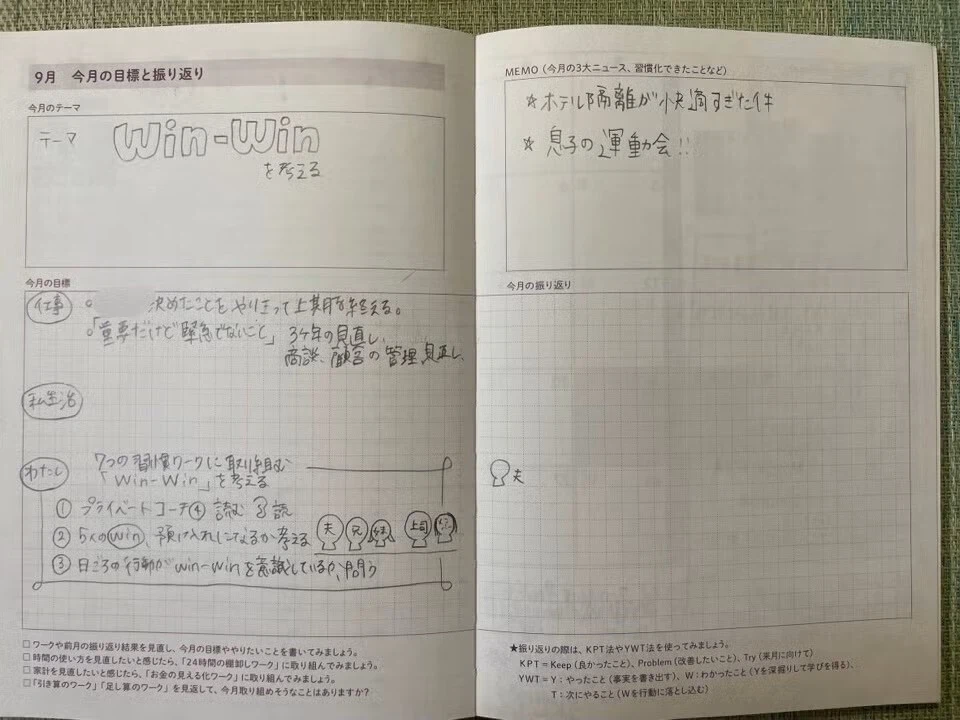 9月 今月の目標と振り返り
今月のテーマ
テーマ Win-Win
を考える
今月の目標
仕事
。決めたことをやりきって上期を終える。
。「重要だけど緊急でないこと」3ヶ年の見直し、
商談、顧客の管理見直し、
私生活
わたし
7つの習慣ワークに取り組む
「Win-Win」を考える
① プライベートコーチ④ 読む 3読
② 5人のwin、預け入れになるか考える 夫 兄 上司
③ 日ごろの行動がwin-winを意識しているか、問う
□ ワークや前月の振り返り結果を見直し、今月の目標ややりたいことを書いてみましょう。
□ 時間の使い方を見直したいと感じたら、「24時間の棚卸しワーク」に取り組んでみましょう。
□ 家計を見直したいと感じたら、「お金の見える化ワーク」に取り組んでみましょう。
□ 「引き算のワーク」「足し算のワーク」を見返して、今月取り組めそうなことはありますか?
MEMO(今月の3大ニュース、習慣化できたことなど)
☆ ホテル隔離が快適すぎた件
☆ 息子の運動会!!
今月の振り返り
夫
★振り返りの際は、KPT法やYWT法を使ってみましょう。
KPT=Keep(良かったこと)、Problem(改善したいこと)、Try(来月に向けて)
YWT=Y:やったこと(事実を書き出す)、W:わかったこと(Yを深掘りして学びを得る)、
T:次にやること(Wを行動に落とし込む)